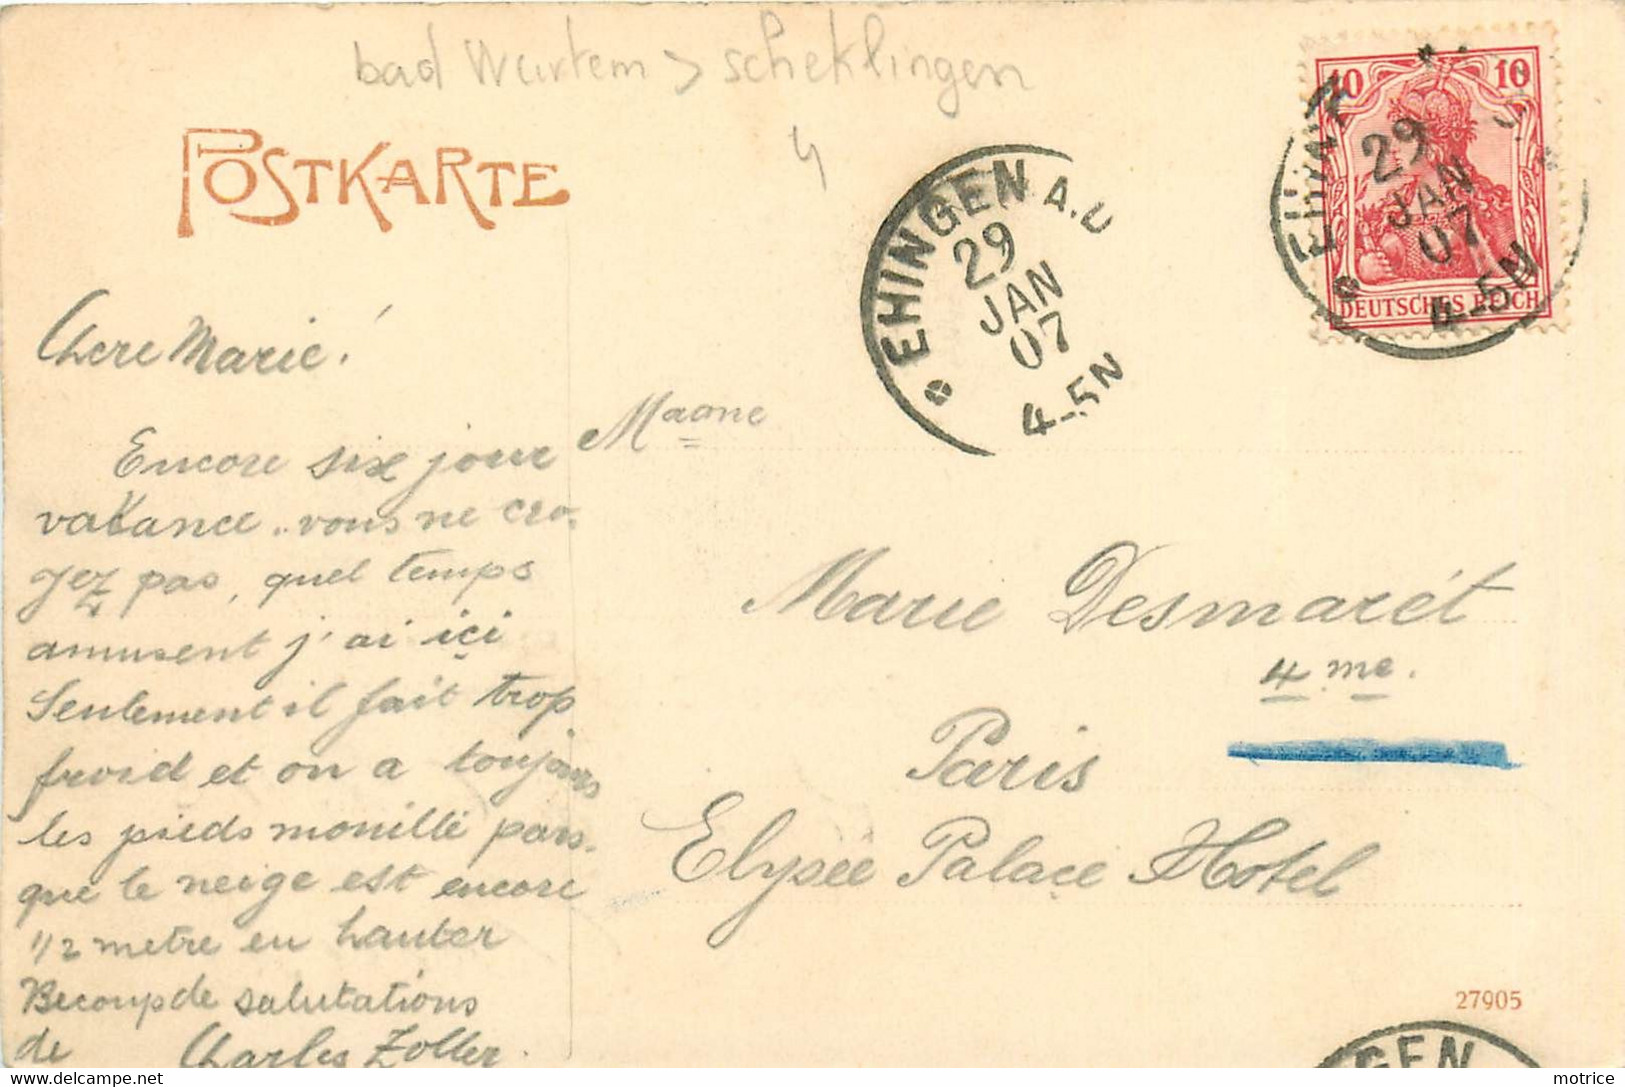 bad Wurtem > scheklingen
4
POSTKARTE
10 10
DEUTSCHES REICH
29
JAN
07
4-5N
EHINGEN A.D
29
JAN
07
4-5N
Chere Marie!
Encore six jour
vakance..vous ne cro-
yez pas, quel temps
amusent j'ai içi
Seulement il fait trop
froid et on a toujours
les pieds mouillé pars-
que le neige est encore
1/2 metre en hauter
Becoup de salutations
de Charles Zoller.
Marie Desmarét
4 me.
Paris
Elysée Palace Hotel
27905
GEN
motrice